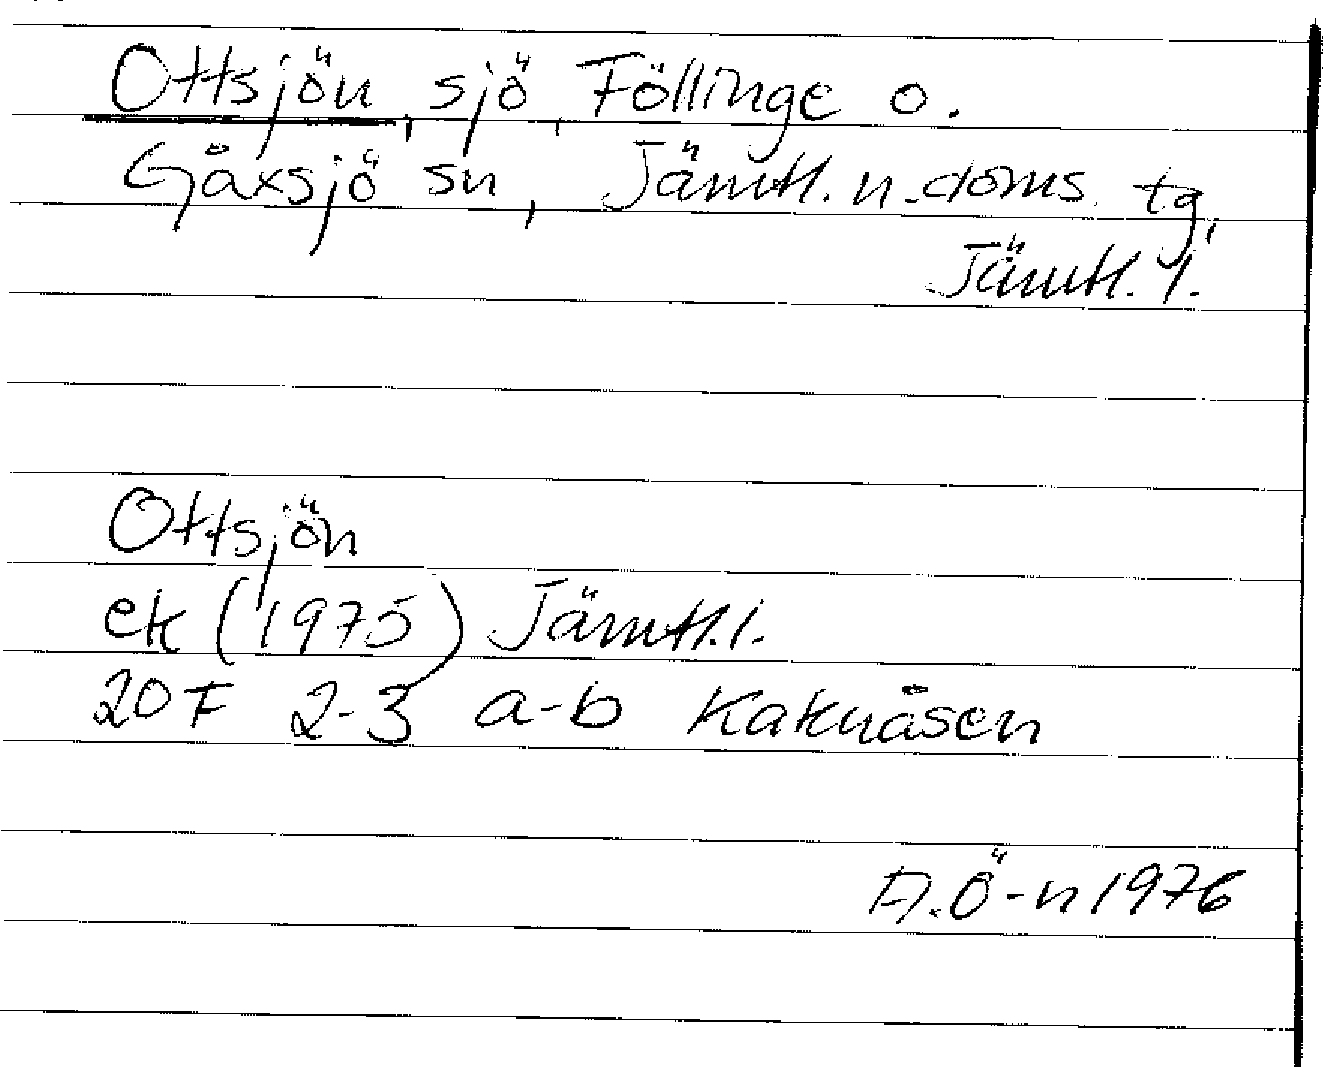 Ottsjön, sjö, Föllinge o.
Gåxsjö sn, Jämtl. n. doms. tg,
Jämtl. l.
Ottsjön
ek (1975) Jämtl. l.
20F 2-3 a-b Kaknåsen
A.Ö-n 1976